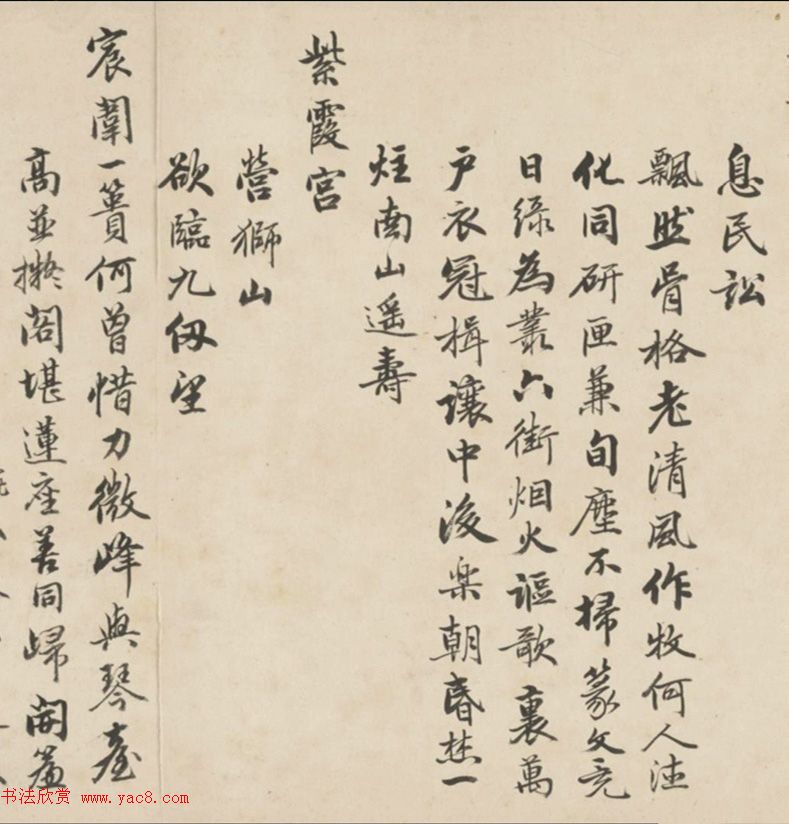 息民訟
飄然骨格老清風作牧何人德
化同研匣兼旬塵不掃篆文竟
日綠為叢六街烟火謳歌裏萬
户衣冠揖讓中後樂朝昏焚一
炷南山遥壽
紫霞宮
營獅山
欲臨九仭望
宸闈一簣何曾惜力微峰與琴臺
高並擬閣堪蓮座善同歸開簾
书法欣赏 www.yac8.com